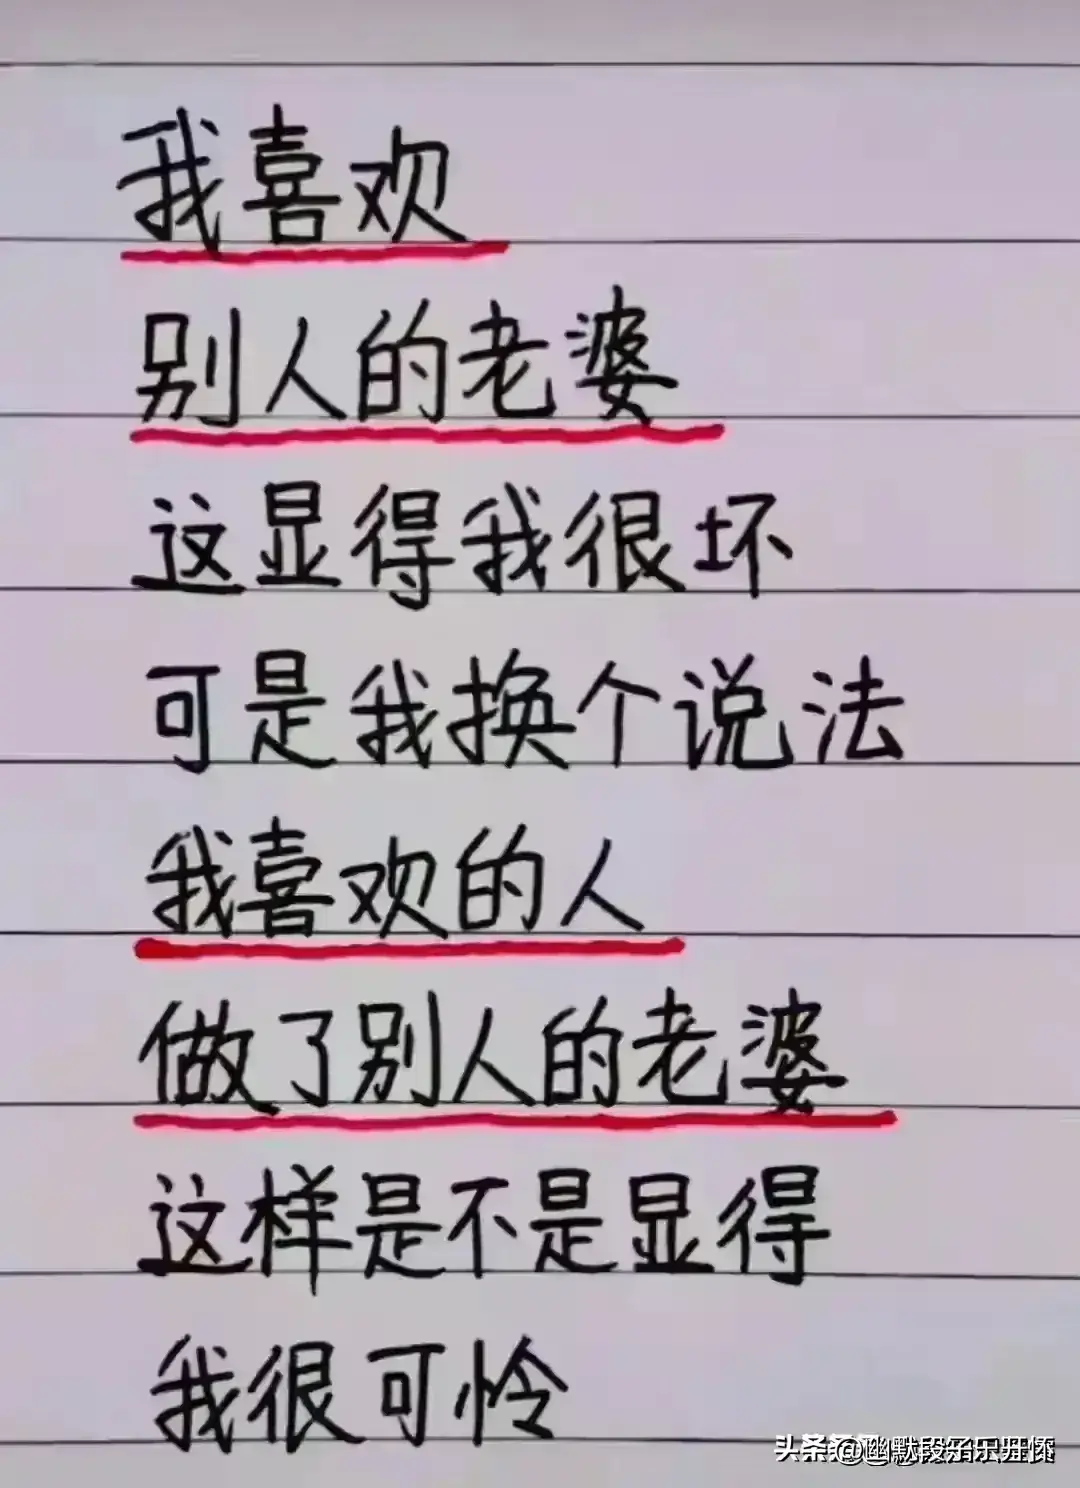 我喜欢
别人的老婆
这显得我很坏
可是我换个说法
我喜欢的人
做了别人的老婆
这样是不是显得
我很可怜
头条 @幽默段子